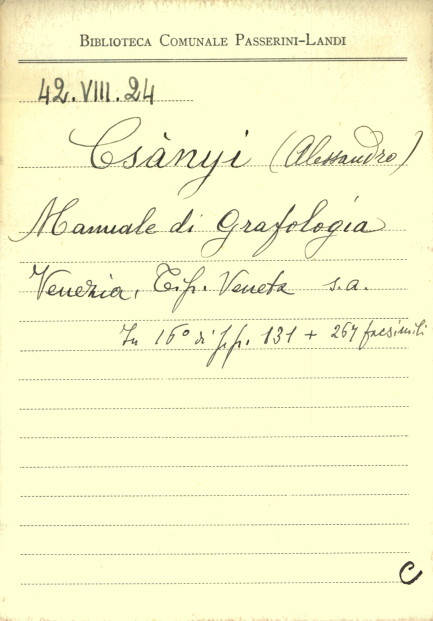 BIBLIOTECA COMUNALE PASSERINI-LANDI
42.VIII.24
Csànyi (Alessandro)
Manuale di Grafologia
Venezia, Tip. Veneta s.a.
In 16° di pp. 131 + 267 facsimili
C